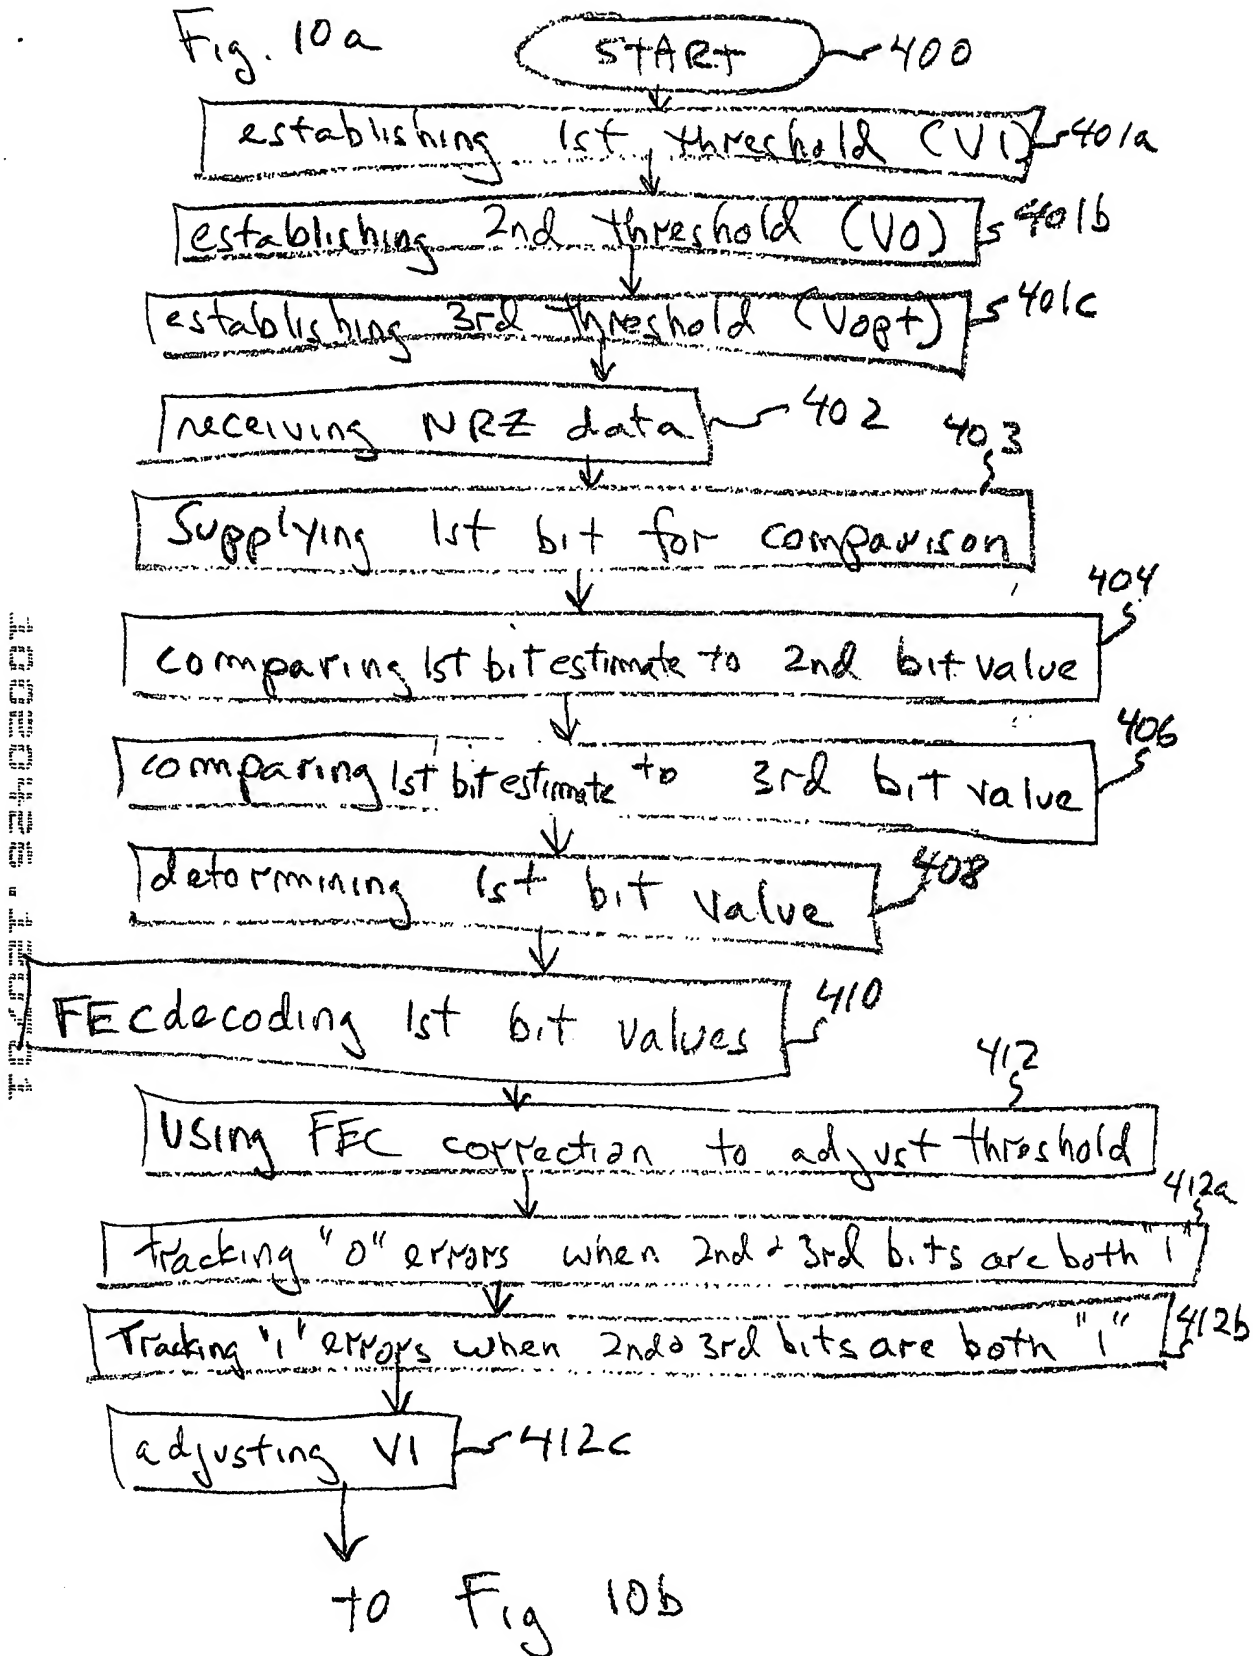 Fig. 10a
START 400
establishing 1st threshold (V1) 401a
establishing 2nd threshold (V0) 401b
establishing 3rd threshold (Vopt) 401c
receiving NRZ data 402
403
Supplying 1st bit for comparison
404
comparing 1st bit estimate to 2nd bit value
406
comparing 1st bit estimate to 3rd bit value
determining 1st bit value 408
FEC decoding 1st bit values 410
412
Using FEC correction to adjust threshold
412a
Tracking "0" errors when 2nd & 3rd bits are both "1"
Tracking "1" errors when 2nd & 3rd bits are both "1" 412b
adjusting V1 412c
to Fig 10b